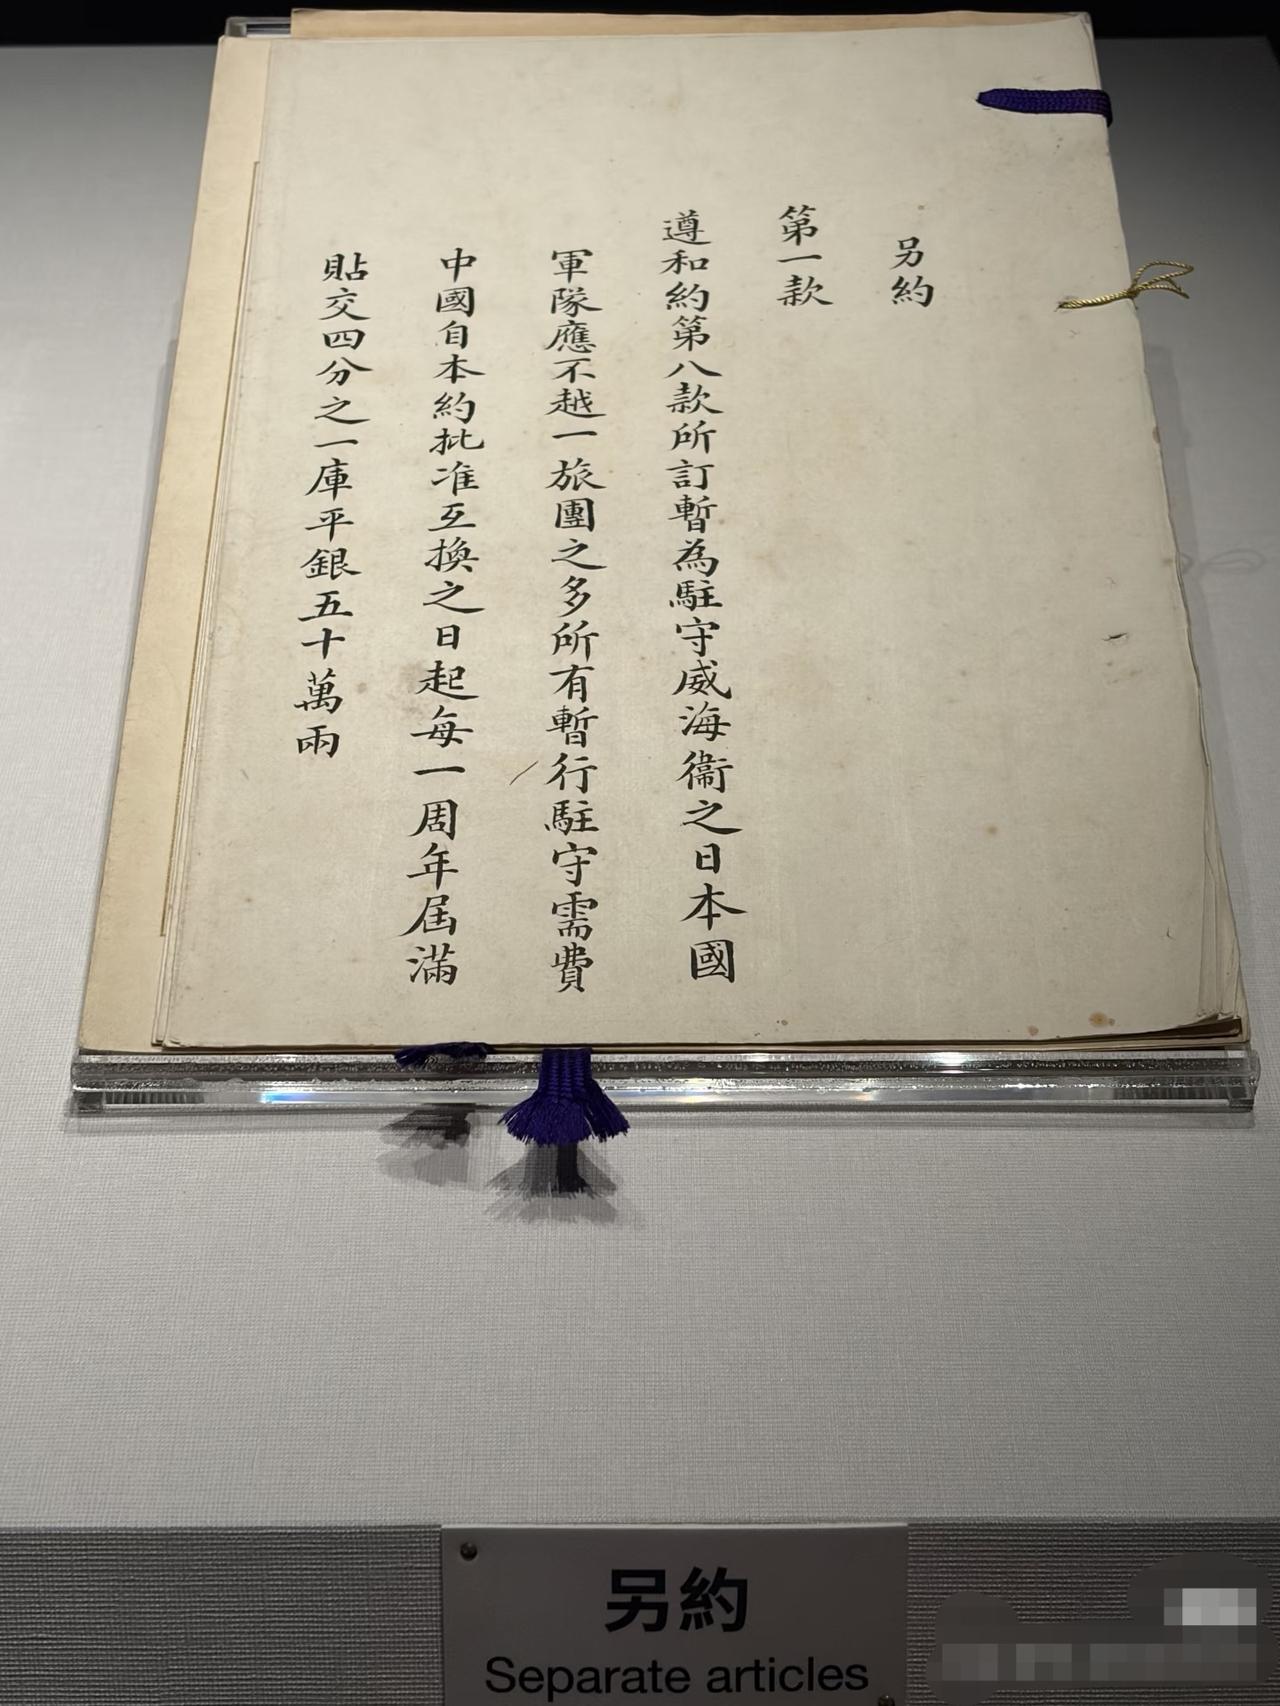 另約
第一款
遵和約第八款所訂暫為駐守威海衞之日本國
軍隊應不越一旅團之多所有暫行駐守需費
中國自本約批准互換之日起每一周年屆滿
貼交四分之一庫平銀五十萬兩
另約
Separate articles